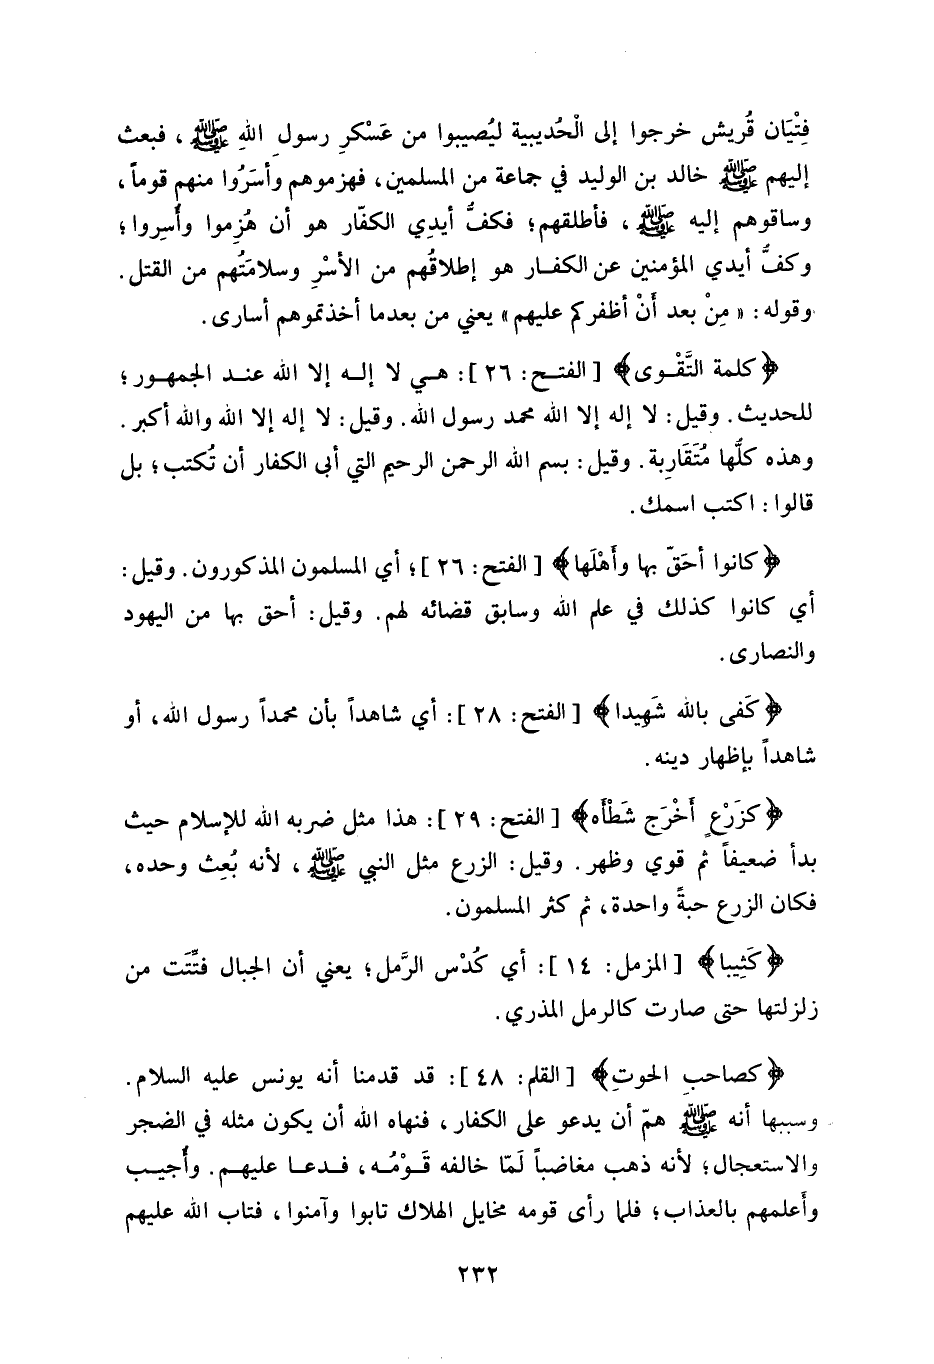 فِتْيَان قُريش خرجوا إلى الْحُديبية ليُصيبوا من عَسْكرِ رسولِ اللهِ ﷺ ، فبعث
إليهم ﷺ خالد بن الوليد في جماعة من المسلمين، فهزموهم وأسَرُوا منهم قوماً،
وساقوهم إليه ﷺ ، فأطلقهم؛ فكفُّ أيدِي الكفّار هو أن هُزِموا وأُسِروا؛
وكفُّ أيدي المؤمنين عن الكفــار هو إطلاقُهم من الأسْرِ وسلامَتُهم من القتل.
وقوله: « مِنْ بعد أَنْ أظفركم عليهم» يعني من بعدما أخذتموهم أسارى.
﴿كلمة التَّقْوى﴾ [ الفتــح: ٢٦ ]: هــي لا إلــه إلا الله عنــد الجمهــور؛
للحديث. وقيل: لا إله إلا الله محمد رسول الله. وقيل: لا إله إلا الله والله أكبر.
وهذه كلُّها مُتَقَارِبة. وقيل: بسم الله الرحمن الرحيم التي أبى الكفار أن تُكتب؛ بل
قالوا: اكتب اسمك.
﴿كانوا أحَقّ بها وأَهْلَها﴾ [ الفتح: ٢٦ ]؛ أي المسلمون المذكورون. وقيل:
أي كانوا كذلك في علم الله وسابق قضائه لهم. وقيل: أحق بها من اليهود
والنصارى.
﴿كَفى بالله شَهِيدا﴾ [ الفتح: ٢٨ ]: أي شاهداً بأن محمداً رسول الله، أو
شاهداً بإظهار دينه.
﴿كزَرْعٍ أَخْرَج شَطْأَه﴾ [ الفتح: ٢٩ ]: هذا مثل ضربه الله للإسلام حيث
بدأ ضعيفاً ثم قوي وظهر. وقيل: الزرع مثل النبي ﷺ ، لأنه بُعِث وحده،
فكان الزرع حبةً واحدة، ثم كثر المسلمون.
﴿كَثِيبا﴾ [ المزمل: ١٤ ]: أي كُدْس الرَّمل؛ يعني أن الجبال فتِّتَت من
زلزلتها حتى صارت كالرمل المذري.
﴿كصاحبِ الحوتِ﴾ [ القلم: ٤٨ ]: قد قدمنا أنه يونس عليه السلام.
وسببها أنه ﷺ همّ أن يدعو على الكفار، فنهاه الله أن يكون مثله في الضجر
والاستعجال؛ لأنه ذهب مغاضباً لَمّا خالفه قَوْمُه، فــدعــا عليهــم. وأُجيــب
وأَعلمهم بالعذاب؛ فلما رأى قومه مخايل الهلاك تابوا وآمنوا، فتاب الله عليهم
٢٣٢